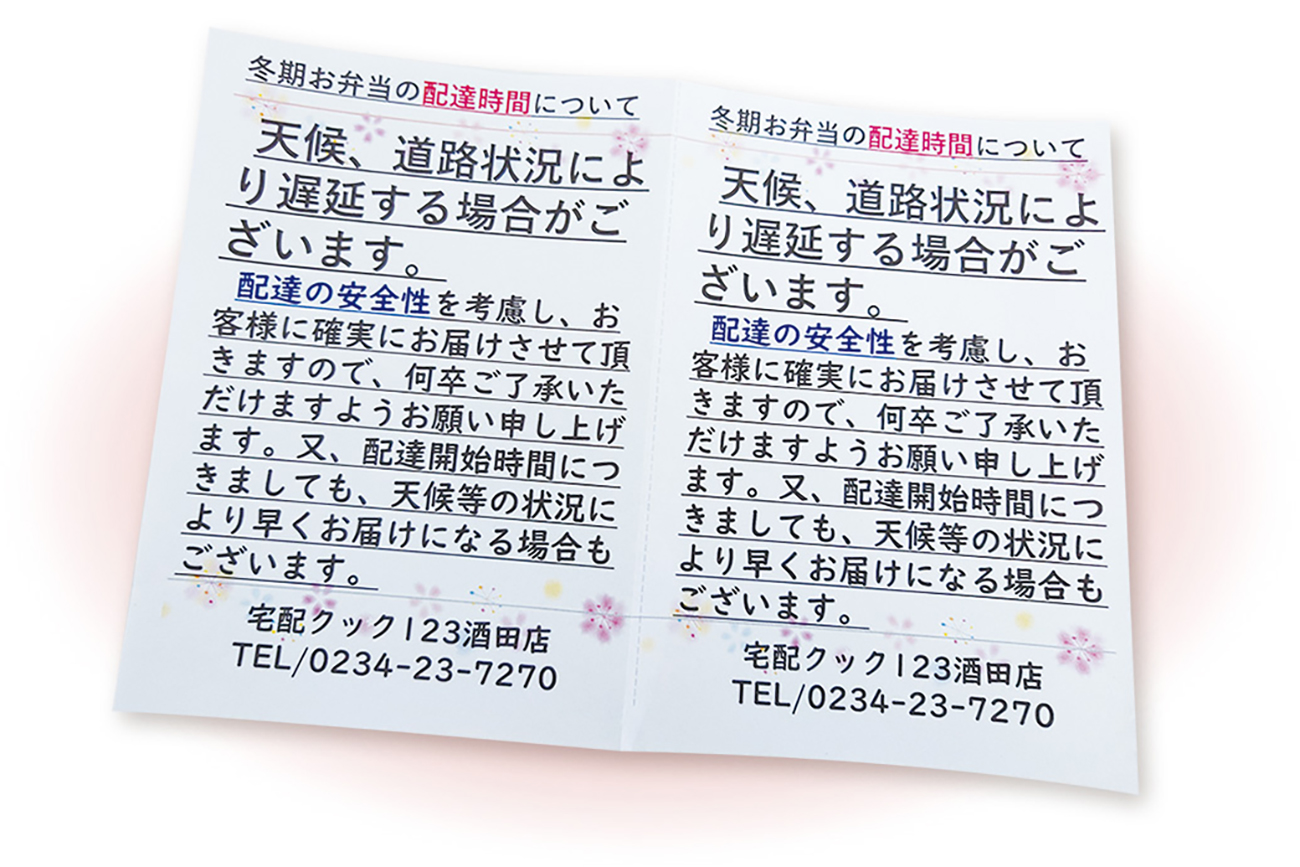 冬期お弁当の配達時間について
天候、道路状況によ
り遅延する場合がご
ざいます。
配達の安全性を考慮し、お
客様に確実にお届けさせて頂
きますので、何卒ご了承いた
だけますようお願い申し上げ
ます。又、配達開始時間につ
きましても、天候等の状況に
より早くお届けになる場合も
ございます。
宅配クック123酒田店
TEL/0234-23-7270
冬期お弁当の配達時間について
天候、道路状況によ
り遅延する場合がご
ざいます。
配達の安全性を考慮し、お
客様に確実にお届けさせて頂
きますので、何卒ご了承いた
だけますようお願い申し上げ
ます。又、配達開始時間につ
きましても、天候等の状況に
より早くお届けになる場合も
ございます。
宅配クック123酒田店
TEL/0234-23-7270